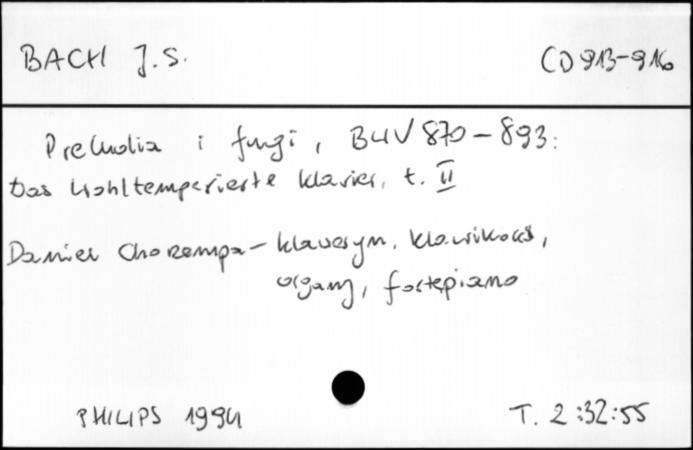 BACH J.S.
CD 913-916
Preludia i fugi, BWV 870-893:
Das Wohltemperierte Klavier, t. II
Daniel Chorzempa - klawesyn, klawikord,
organy, fortepiano
PHILIPS 1994
T. 2:32:55